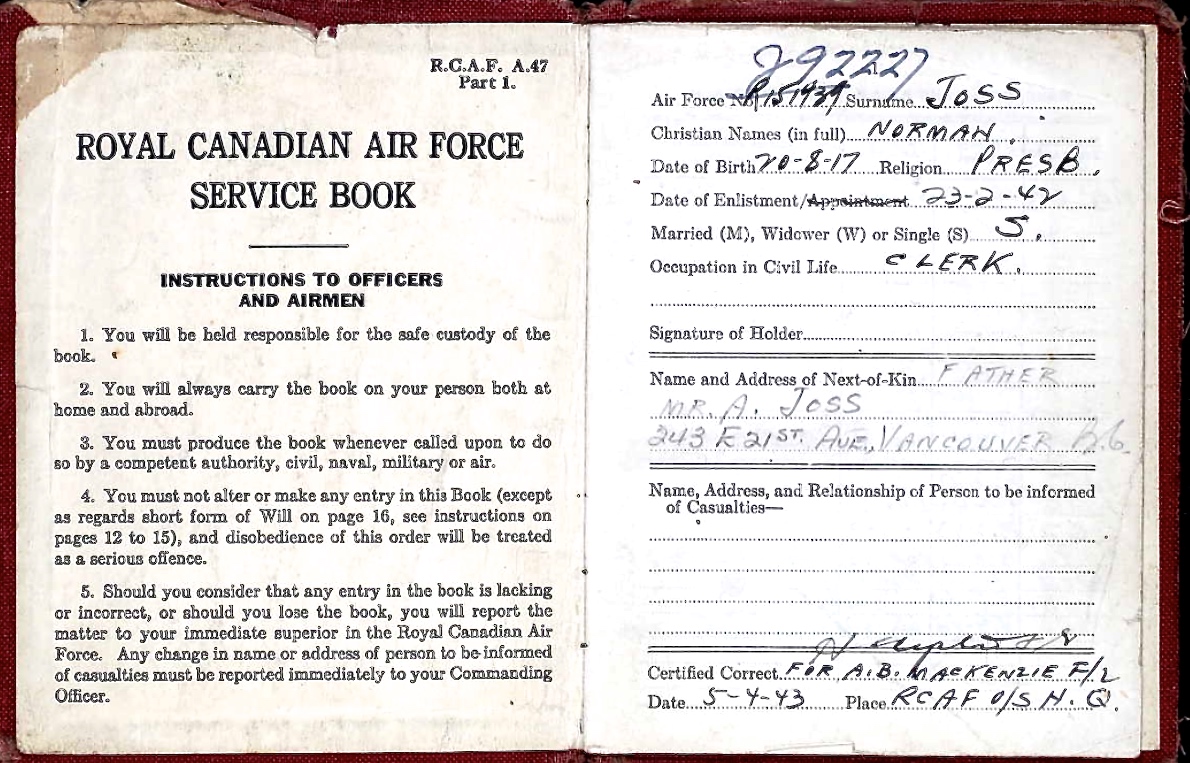 R.C.A.F. A.47
Part 1.
ROYAL CANADIAN AIR FORCE
SERVICE BOOK
INSTRUCTIONS TO OFFICERS
AND AIRMEN
1. You will be held responsible for the safe custody of the
book.
2. You will always carry the book on your person both at
home and abroad.
3. You must produce the book whenever called upon to do
so by a competent authority, civil, naval, military or air.
4. You must not alter or make any entry in this Book (except
as regards short form of Will on page 16, see instructions on
pages 12 to 15), and disobedience of this order will be treated
as a serious offence.
5. Should you consider that any entry in the book is lacking
or incorrect, or should you lose the book, you will report the
matter to your immediate superior in the Royal Canadian Air
Force. Any change in name or address of person to be informed
of casualties must be reported immediately to your Commanding
Officer.
J92227
Air Force No. Surname JOSS
Christian Names (in full) NORMAN.
Date of Birth 20-8-17 Religion PRESB.
Date of Enlistment/Appointment 23-2-42
Married (M), Widower (W) or Single (S) S.
Occupation in Civil Life CLERK.
Signature of Holder
Name and Address of Next-of-Kin FATHER
MR. A. JOSS
343 E 21ST. AVE., VANCOUVER B.C.
Name, Address, and Relationship of Person to be informed
of Casualties—
Certified Correct FOR A.B. MACKENZIE F/L
Date 5-4-43 Place RCAF O/S H.Q.